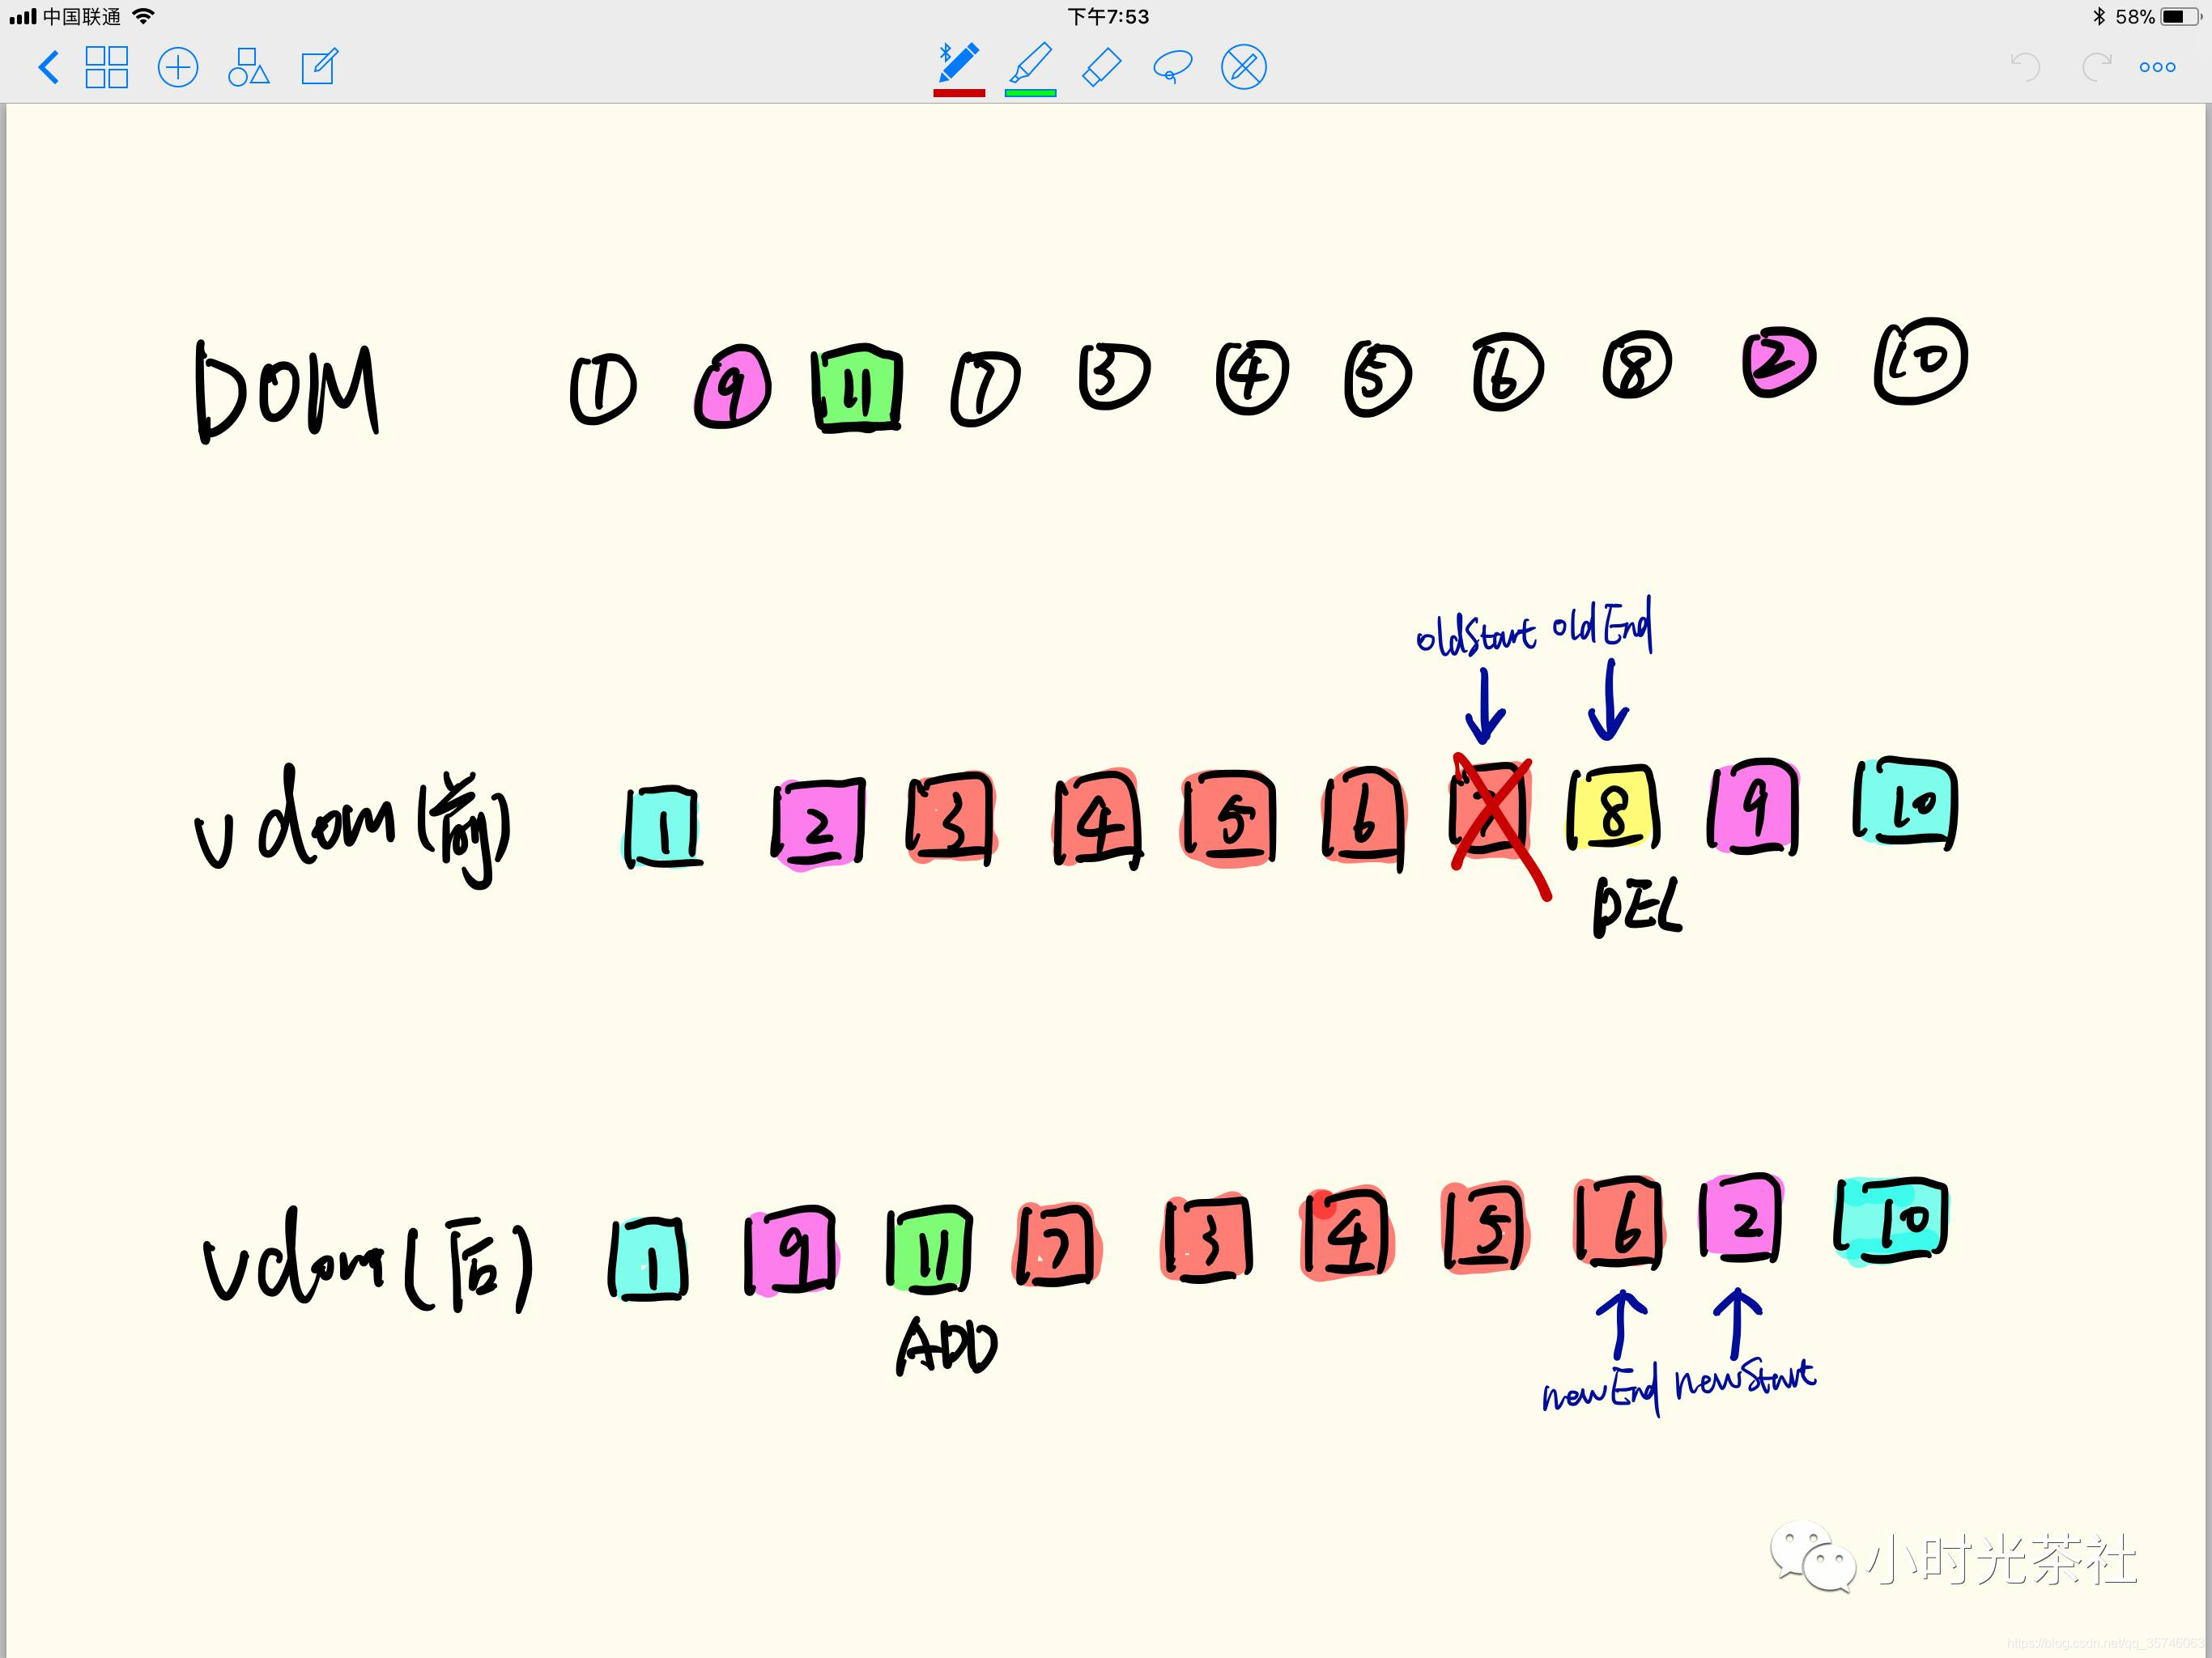 中国联通 下午7:53 58%
DOM 1 9 11 7 3 4 5 6 8 2 10
oldStart oldEnd
vdom(前) 1 2 3 4 5 6 7 8 9 10
DEL
vdom(后) 1 9 11 7 3 4 5 6 2 10
ADD
newEnd newStart
小时光茶社
https://blog.csdn.net/qq_35746063